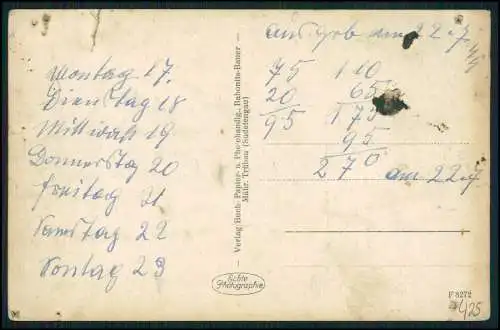 Montag 17.
Dienstag 18
Mittwoch 19
Donnerstag 20
Freitag 21
Samstag 22
Sontag 23
Verlag Buch- Papier- u. Photohandlg. Rabonita-Bauer
Mähr. Trübau (Sudetengau)
Echte
Photographie
am 22.7
45
75
20
95
110
65
175
95
270
am 22.7
F 8272
425